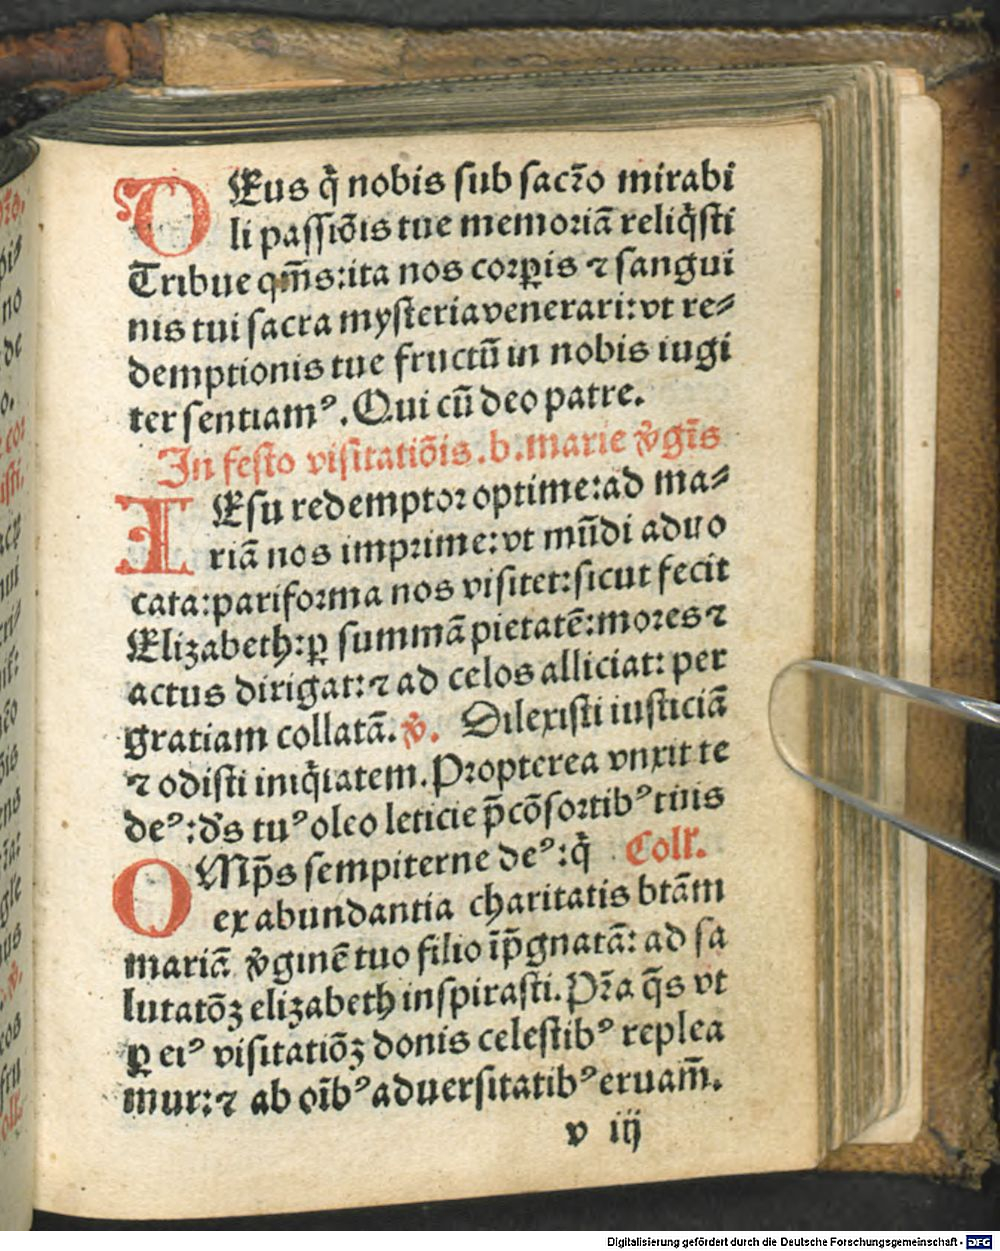 DEus q̄ nobis sub sacr̄o mirabi
li passiōis tue memoriā reliq̄sti
Tribue qm̄s:ita nos corꝑis ⁊ sangui
nis tui sacra mysteria venerari:vt re⸗
demptionis tue fructū in nobis iugi
ter sentiamꝰ. Qui cū deo patre.
In festo visitatiōis.b.marie v̄gīs
IEsu redemptor optime:ad ma⸗
riā nos imprime:vt mūdi aduo
cata:pariforma nos visitet:sicut fecit
Elizabeth:ꝑ summā pietatē:mores ⁊
actus dirigat:⁊ ad celos alliciat: per
gratiam collatā. ℣. Dilexisti iusticiā
⁊ odisti iniq̄tatem. Propterea vnxit te
deꝰ:d's tuꝰ oleo leticie p̄ cōsortibꝰ tuis
OMp̄s sempiterne deꝰ:q̄ Coll'.
ex abundantia charitatis btām
mariā v̄ginē tuo filio īp̄gnatā: ad sa
lutatōꝫ elizabeth inspirasti. Pr̄a q̄s vt
ꝑ eiꝰ visitatiōꝫ donis celestibꝰ replea
mur:⁊ ab oībꝰ aduersitatibꝰ eruam̄.
v iij
Digitalisierung gefördert durch die Deutsche Forschungsgemeinschaft - DFG